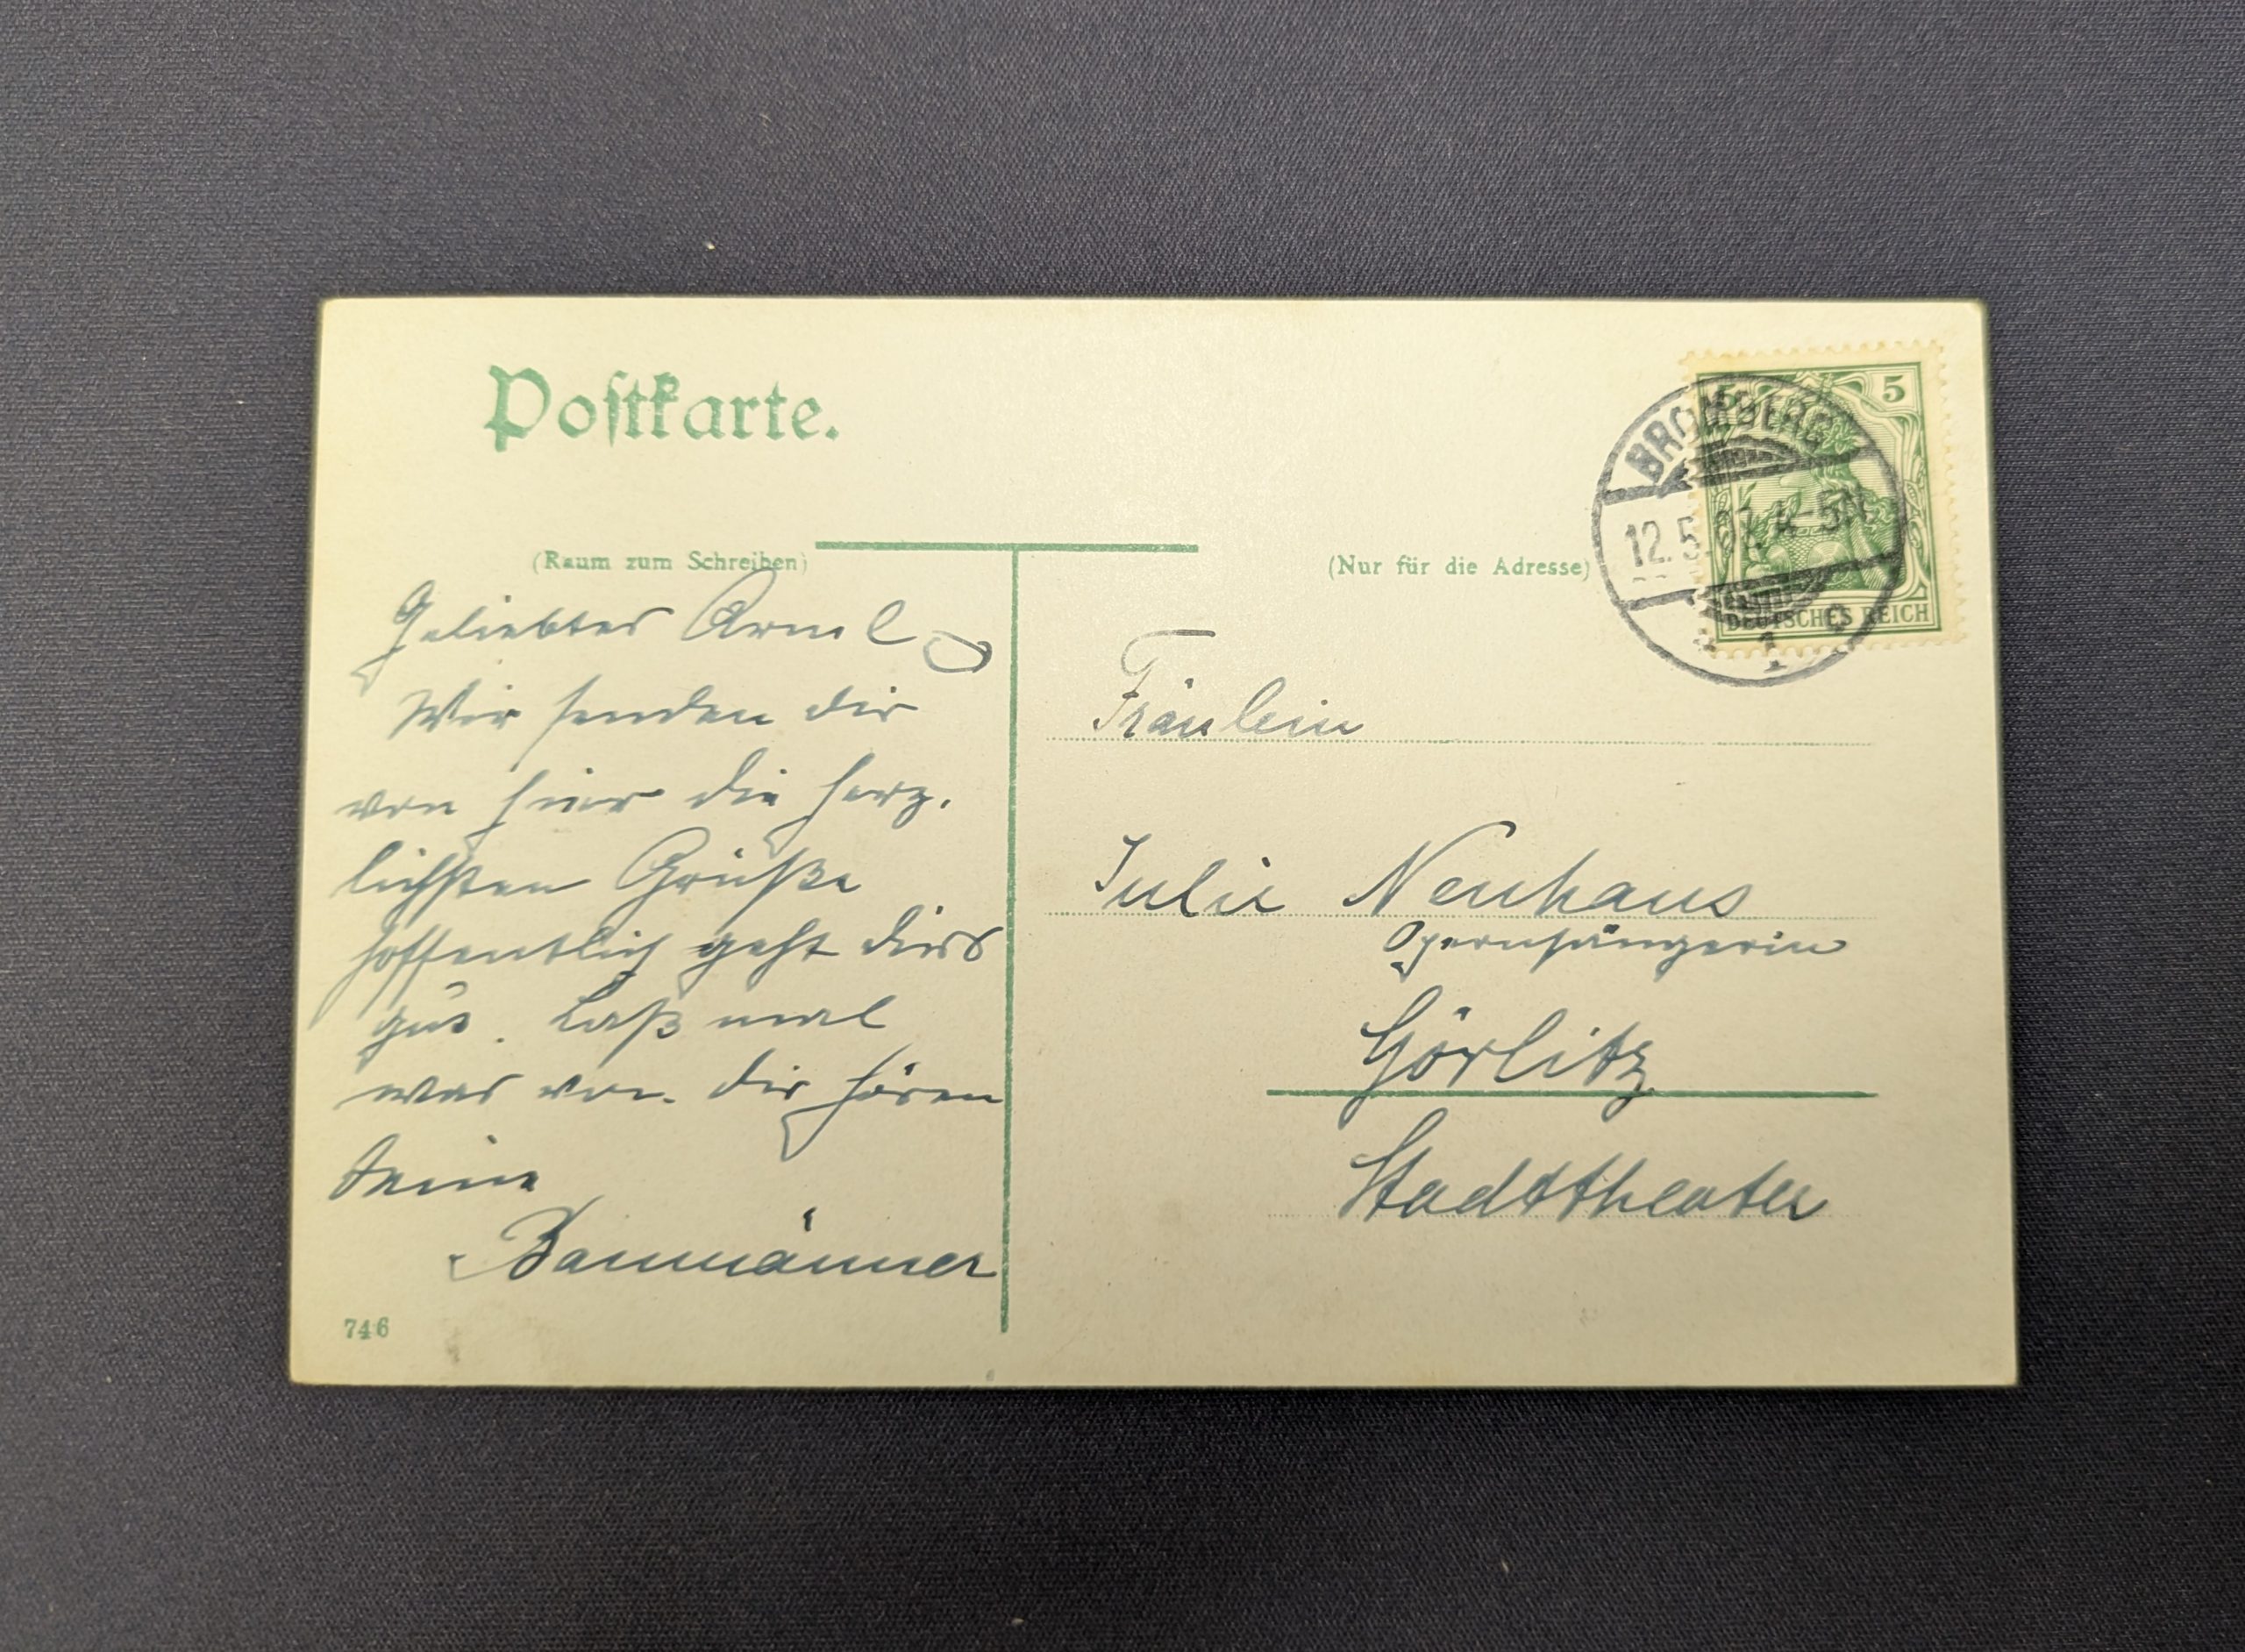 Postkarte.
(Raum zum Schreiben)
(Nur für die Adresse)
5 5
DEUTSCHES REICH
BROMBERG
12.5.07. 4-5N
* 1 *
Geliebtes
Wir senden dir
von hier die herz.
lichsten Grüße
hoffentlich geht dirs
gut. Laß mal
was von dir hören
deine
746
Fräulein
Julie Neuhaus
Opernsängerin
Görlitz
Stadttheater